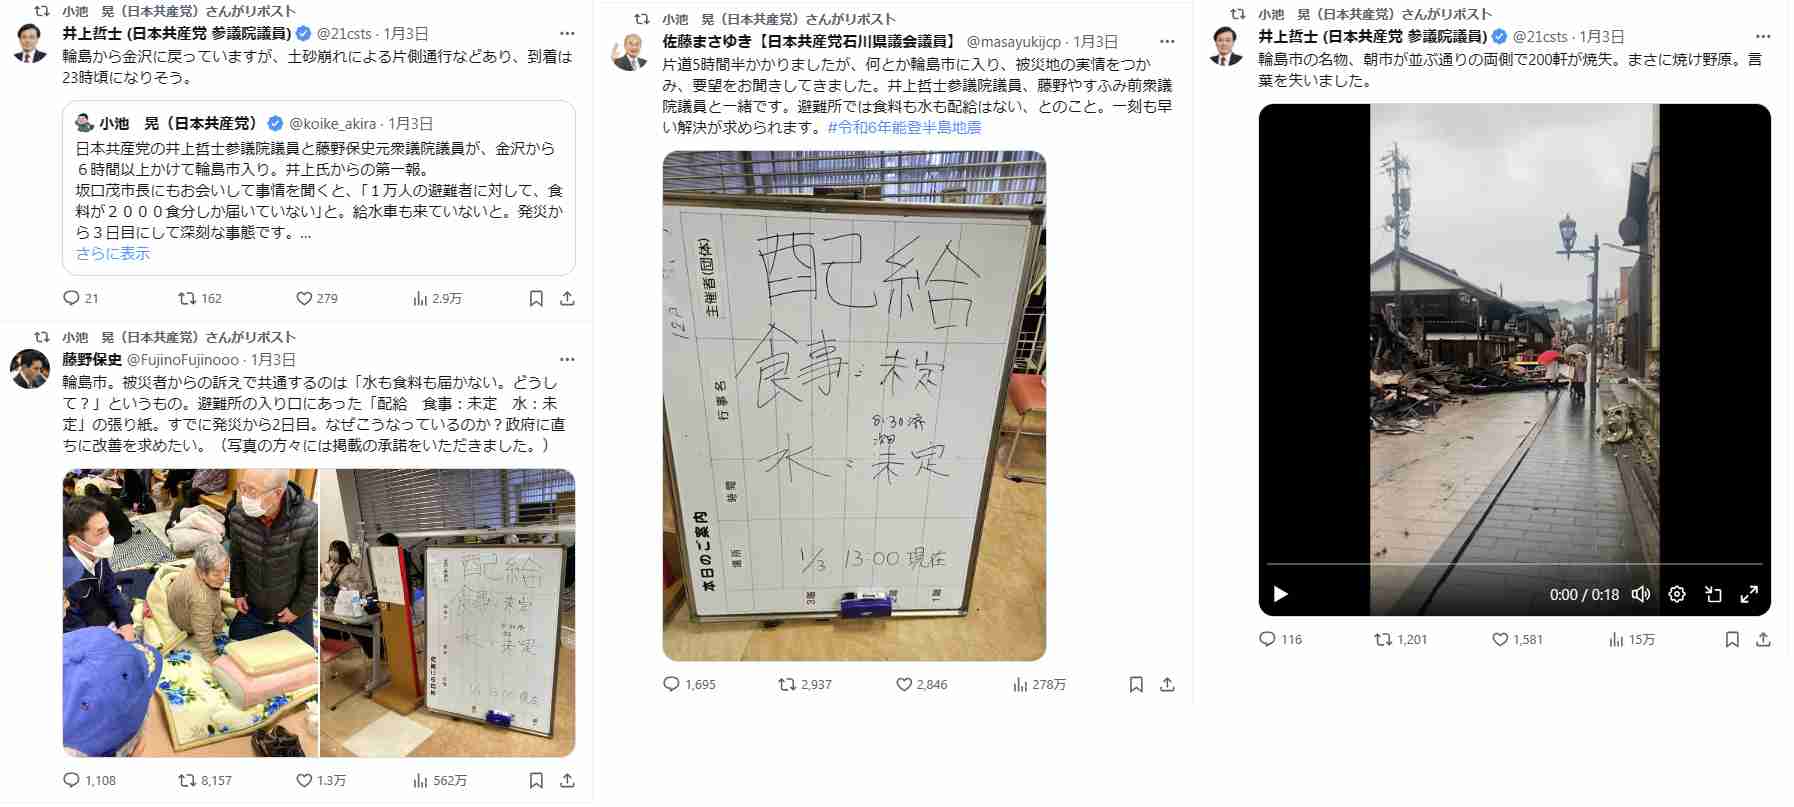 小池　晃（日本共産党）さんがリポスト
井上哲士 (日本共産党 参議院議員) @21csts · 1月3日
輪島から金沢に戻っていますが、土砂崩れによる片側通行などあり、到着は
23時頃になりそう。
小池　晃（日本共産党） @koike_akira · 1月3日
日本共産党の井上哲士参議院議員と藤野保史元衆議院議員が、金沢から
６時間以上かけて輪島市入り。井上氏からの第一報。
坂口茂市長にもお会いして事情を聞くと、「１万人の避難者に対して、食
料が２０００食分しか届いていない」と。給水車も来ていないと。発災か
ら３日目にして深刻な事態です。...
さらに表示
21 162 279 2.9万
小池　晃（日本共産党）さんがリポスト
藤野保史 @FujinoFujinooo · 1月3日
輪島市。被災者からの訴えで共通するのは「水も食料も届かない。どうし
て？」というもの。避難所の入り口にあった「配給　食事：未定　水：未
定」の張り紙。すでに発災から2日目。なぜこうなっているのか？政府に直
ちに改善を求めたい。（写真の方々には掲載の承諾をいただきました。）
配給
食事：未定
水：未定
1,108 8,157 1.3万 562万
小池　晃（日本共産党）さんがリポスト
佐藤まさゆき【日本共産党石川県議会議員】 @masayukijcp · 1月3日
片道5時間半かかりましたが、何とか輪島市に入り、被災地の実情をつか
み、要望をお聞きしてきました。井上哲士参議院議員、藤野やすふみ前衆議
院議員と一緒です。避難所では食料も水も配給はない、とのこと。一刻も早
い解決が求められます。#令和6年能登半島地震
主催者(団体)
配給
行事名
食事：未定
8:30済
水：未定
本日のご案内
場所
1/3 13:00 現在
3階
2階
1階
1,695 2,937 2,846 278万
小池　晃（日本共産党）さんがリポスト
井上哲士 (日本共産党 参議院議員) @21csts · 1月3日
輪島市の名物、朝市が並ぶ通りの両側で200軒が焼失。まさに焼け野原。言
葉を失いました。
0:00 / 0:18
116 1,201 1,581 15万